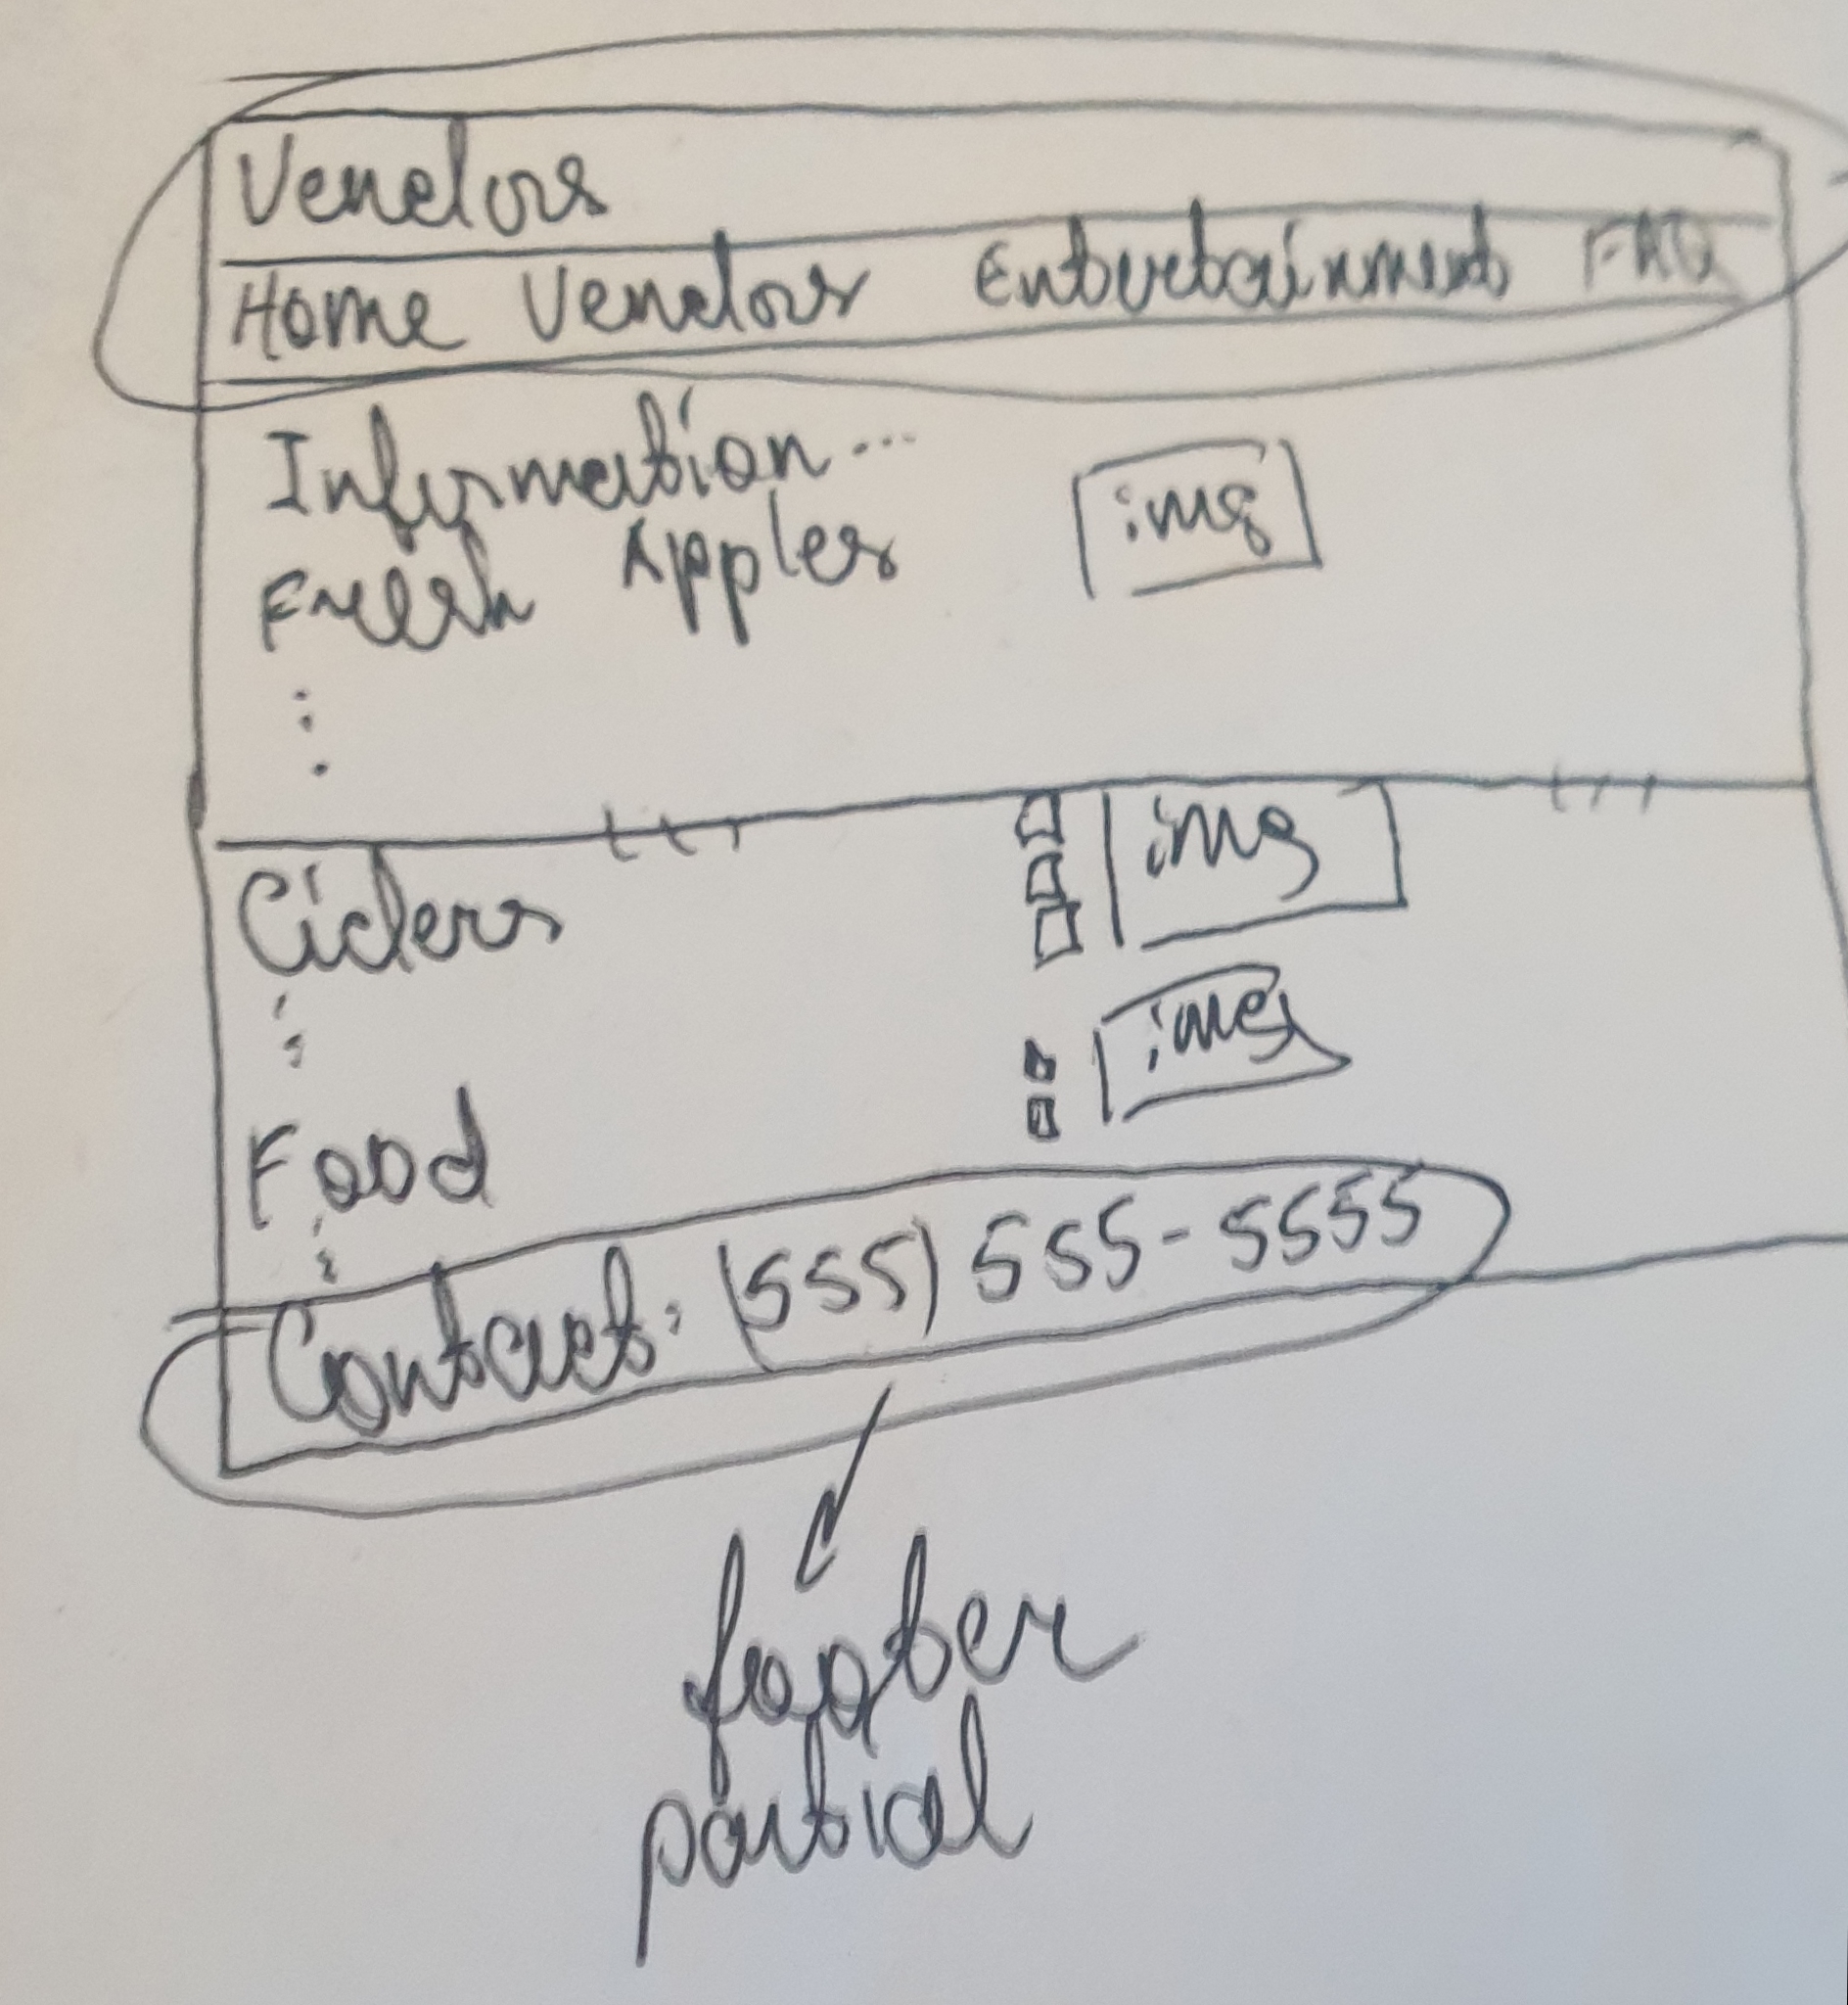 Vendors
Home Vendors Entertainment FAQ
Information...
img
Fresh Apples
img
Ciders
img
Food
Contact: (555) 555-5555
footer
partial